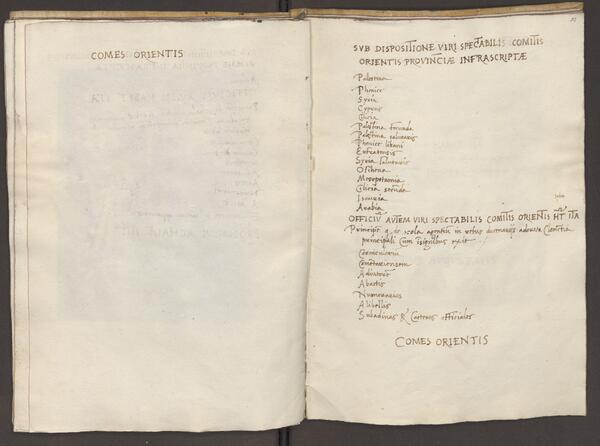 COMES ORIENTIS
SVB DISPOSITIONE VIRI SPECTABILIS COMITIS
ORIENTIS PROVINCIÆ INFRASCRIPTÆ
Palestina
Phenice
Syria
Cyprus
Cilicia
Palestina secunda
Palestina salutaris
Phenice libani
Eufratensis
Syria salutaris
Osrhena
Mesopotamia
Cilicia secunda
Isauria
Arabia
OFFICIV AVTEM VIRI SPECTABILIS COMITIS ORIENTIS HT ITA
Principe q de scola agentu in rebus
principali Cum insignibus exit
Cornicularium
Comentariensem
Adiutore
Abactis
Numerarios
A libellis
Subadiuas & Caeteros officiales
COMES ORIENTIS